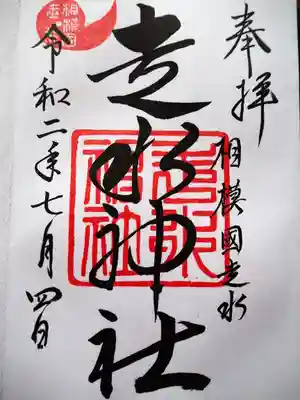 奉拝
相模國走水
走水神社
走水神社
令和二年七月四日